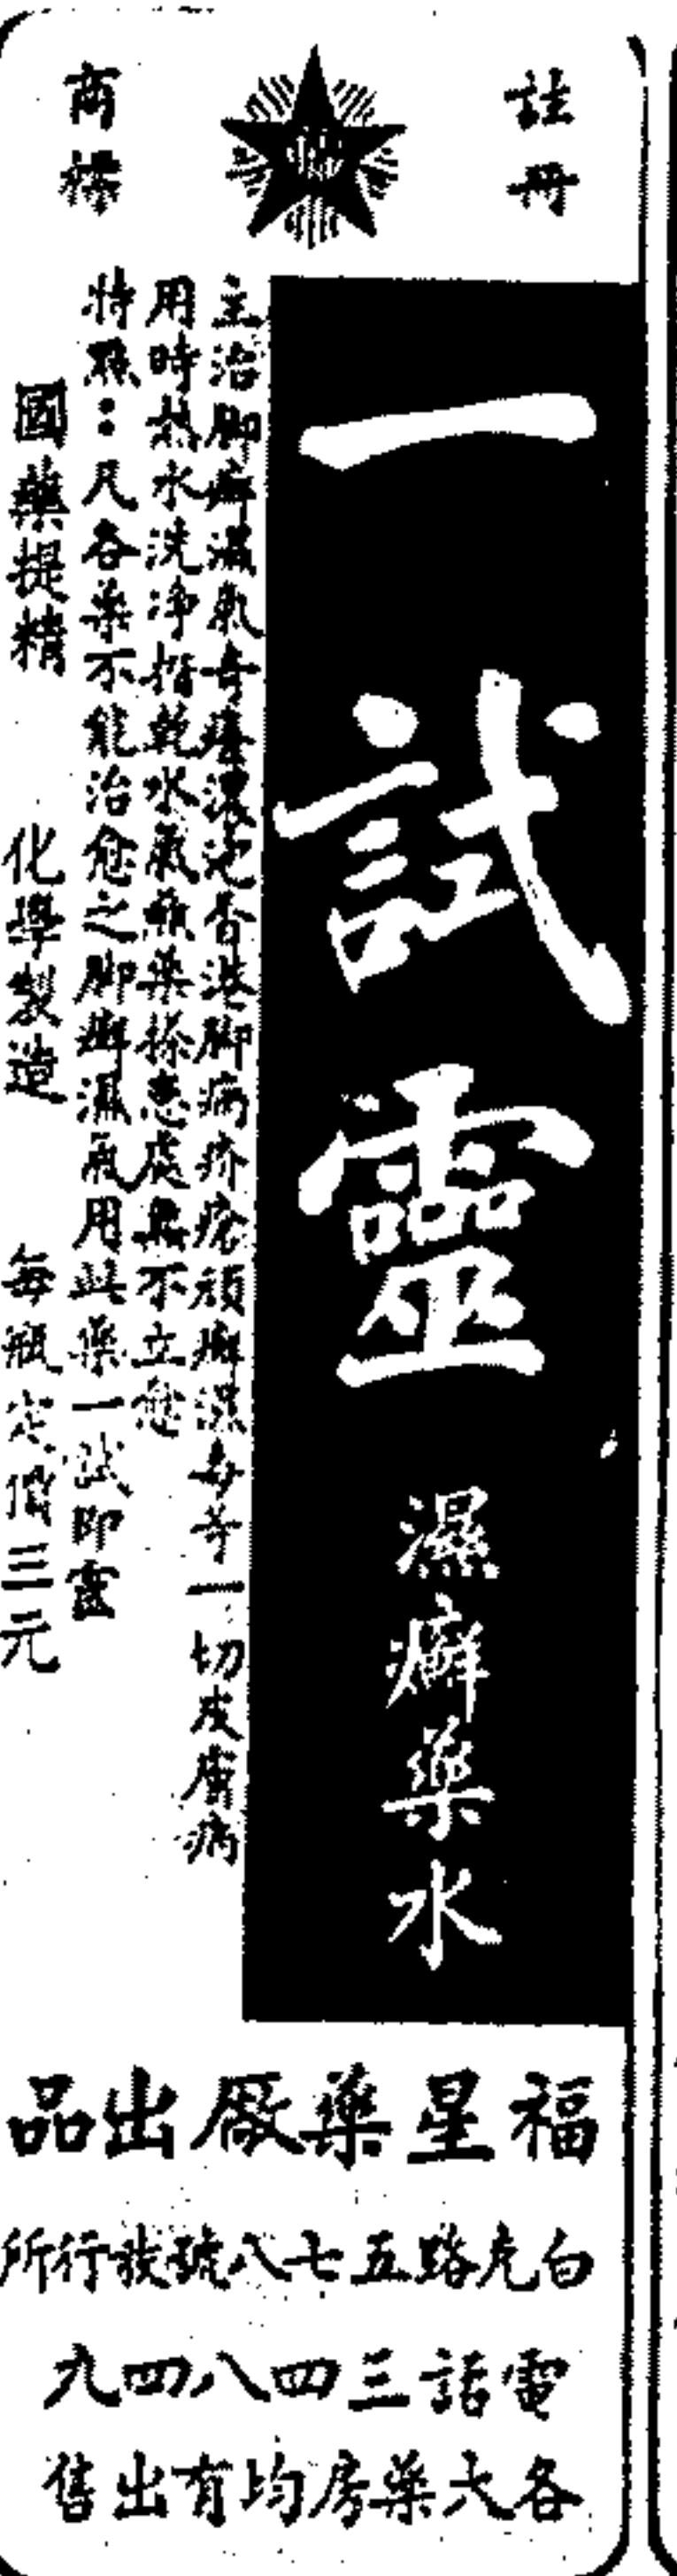 註冊
商標
福
一試靈
濕癬藥水
主治脚癬濕氣奇癢濃泡香港脚病疥瘡頑癬濕毒等一切皮膚病
用時熱水洗净揩乾水氣蘸藥搽患處無不立愈
特點：凡各藥不能治愈之脚癬濕氣用此藥一試即靈
國藥提精 化學製造 每瓶定價三元
福星藥厰出品
白克路五七八號發行所
電話三四八四九
各大藥房均有出售